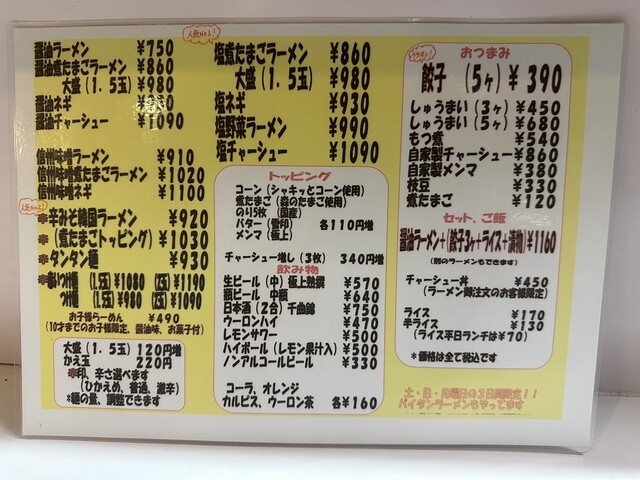 人気No1!
醤油ラーメン ¥750
醤油煮たまごラーメン ¥860
大盛(1.5玉) ¥980
醤油ネギ
醤油チャーシュー ¥1090
信州味噌ラーメン ¥910
信州味噌煮たまごラーメン ¥1020
信州味噌ネギ ¥1100
人気No2!
辛みそ韓国ラーメン ¥920
(煮たまごトッピング) ¥1030
タンタン麺 ¥930
つけ麺 (1.5玉) ¥1080 (2玉) ¥1190
つけ麺 (1.5玉) ¥980 (2玉) ¥1090
お子様らーめん ¥490
(10才までのお子様限定、醤油味、お菓子付)
大盛(1.5玉) 120円増
かえ玉 220円
印、辛さ選べます
(ひかえめ、普通、激辛)
*麺の量、調整できます
塩煮たまごラーメン ¥860
大盛(1.5玉) ¥980
塩ネギ ¥930
塩野菜ラーメン ¥990
塩チャーシュー ¥1090
トッピング
コーン(シャキッとコーン使用)
煮たまご(森のたまご使用)
のり5枚(国産)
バター(雪印) 各110円増
メンマ(極上)
チャーシュー増し(3枚) 340円増
飲み物
生ビール(中)極上熟撰 ¥570
瓶ビール 中瓶 ¥640
日本酒(2合)千曲錦 ¥750
ウーロンハイ ¥470
レモンサワー ¥500
ハイボール(レモン果汁入) ¥500
ノンアルコールビール ¥330
コーラ、オレンジ
カルピス、ウーロン茶 各¥160
おつまみ
餃子 (5ヶ) ¥390
しゅうまい(3ヶ) ¥450
しゅうまい(5ヶ) ¥680
もつ煮 ¥540
自家製チャーシュー ¥860
自家製メンマ ¥380
枝豆 ¥330
煮たまご ¥120
セット、ご飯
醤油ラーメン+(餃子3ヶ+ライス+漬物) ¥1160
(別のラーメンもできます)
チャーシュー丼 ¥450
(ラーメン御注文のお客様限定)
ライス ¥170
半ライス ¥130
(ライス平日ランチは¥70)
*価格は全て税込です
土・日・月曜日の3日間限定!!
パイタンラーメンもやってます